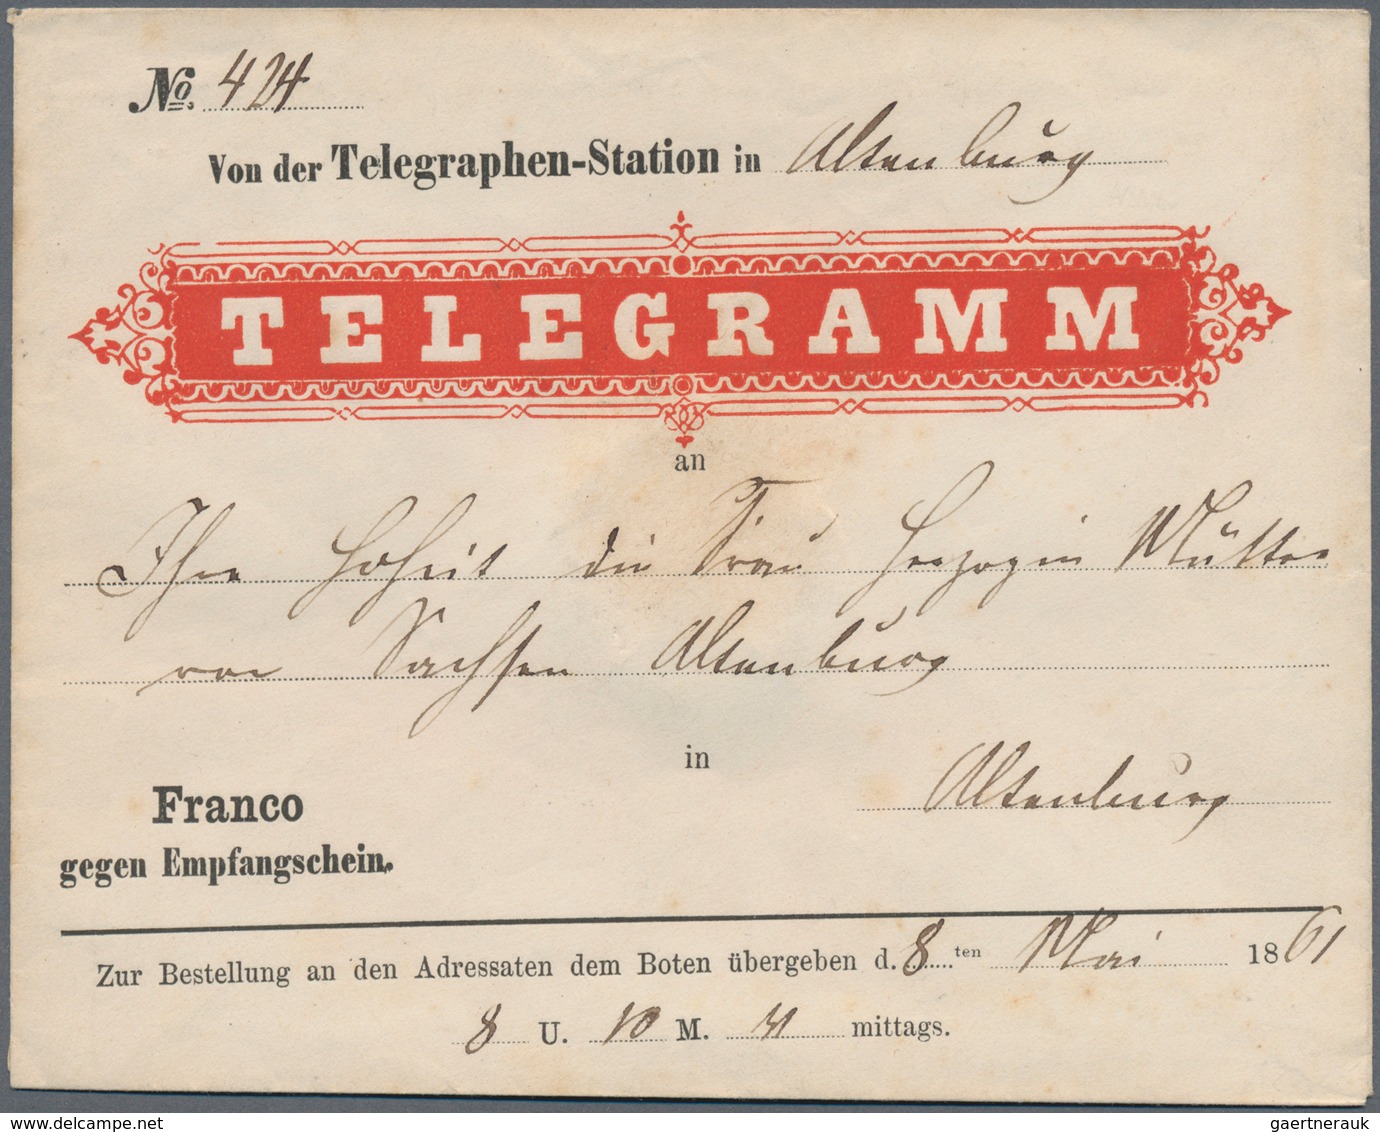 No. 424
Von der Telegraphen-Station in Altenburg
TELEGRAMM
an
Ihre Hoheit die Frau Herzogin Mutter
von Sachsen Altenburg
in
Altenburg
Franco
gegen Empfangschein.
Zur Bestellung an den Adressaten dem Boten übergeben d. 8 ten Mai 1861
8 U. 10 M. mittags.
gaertnerauk